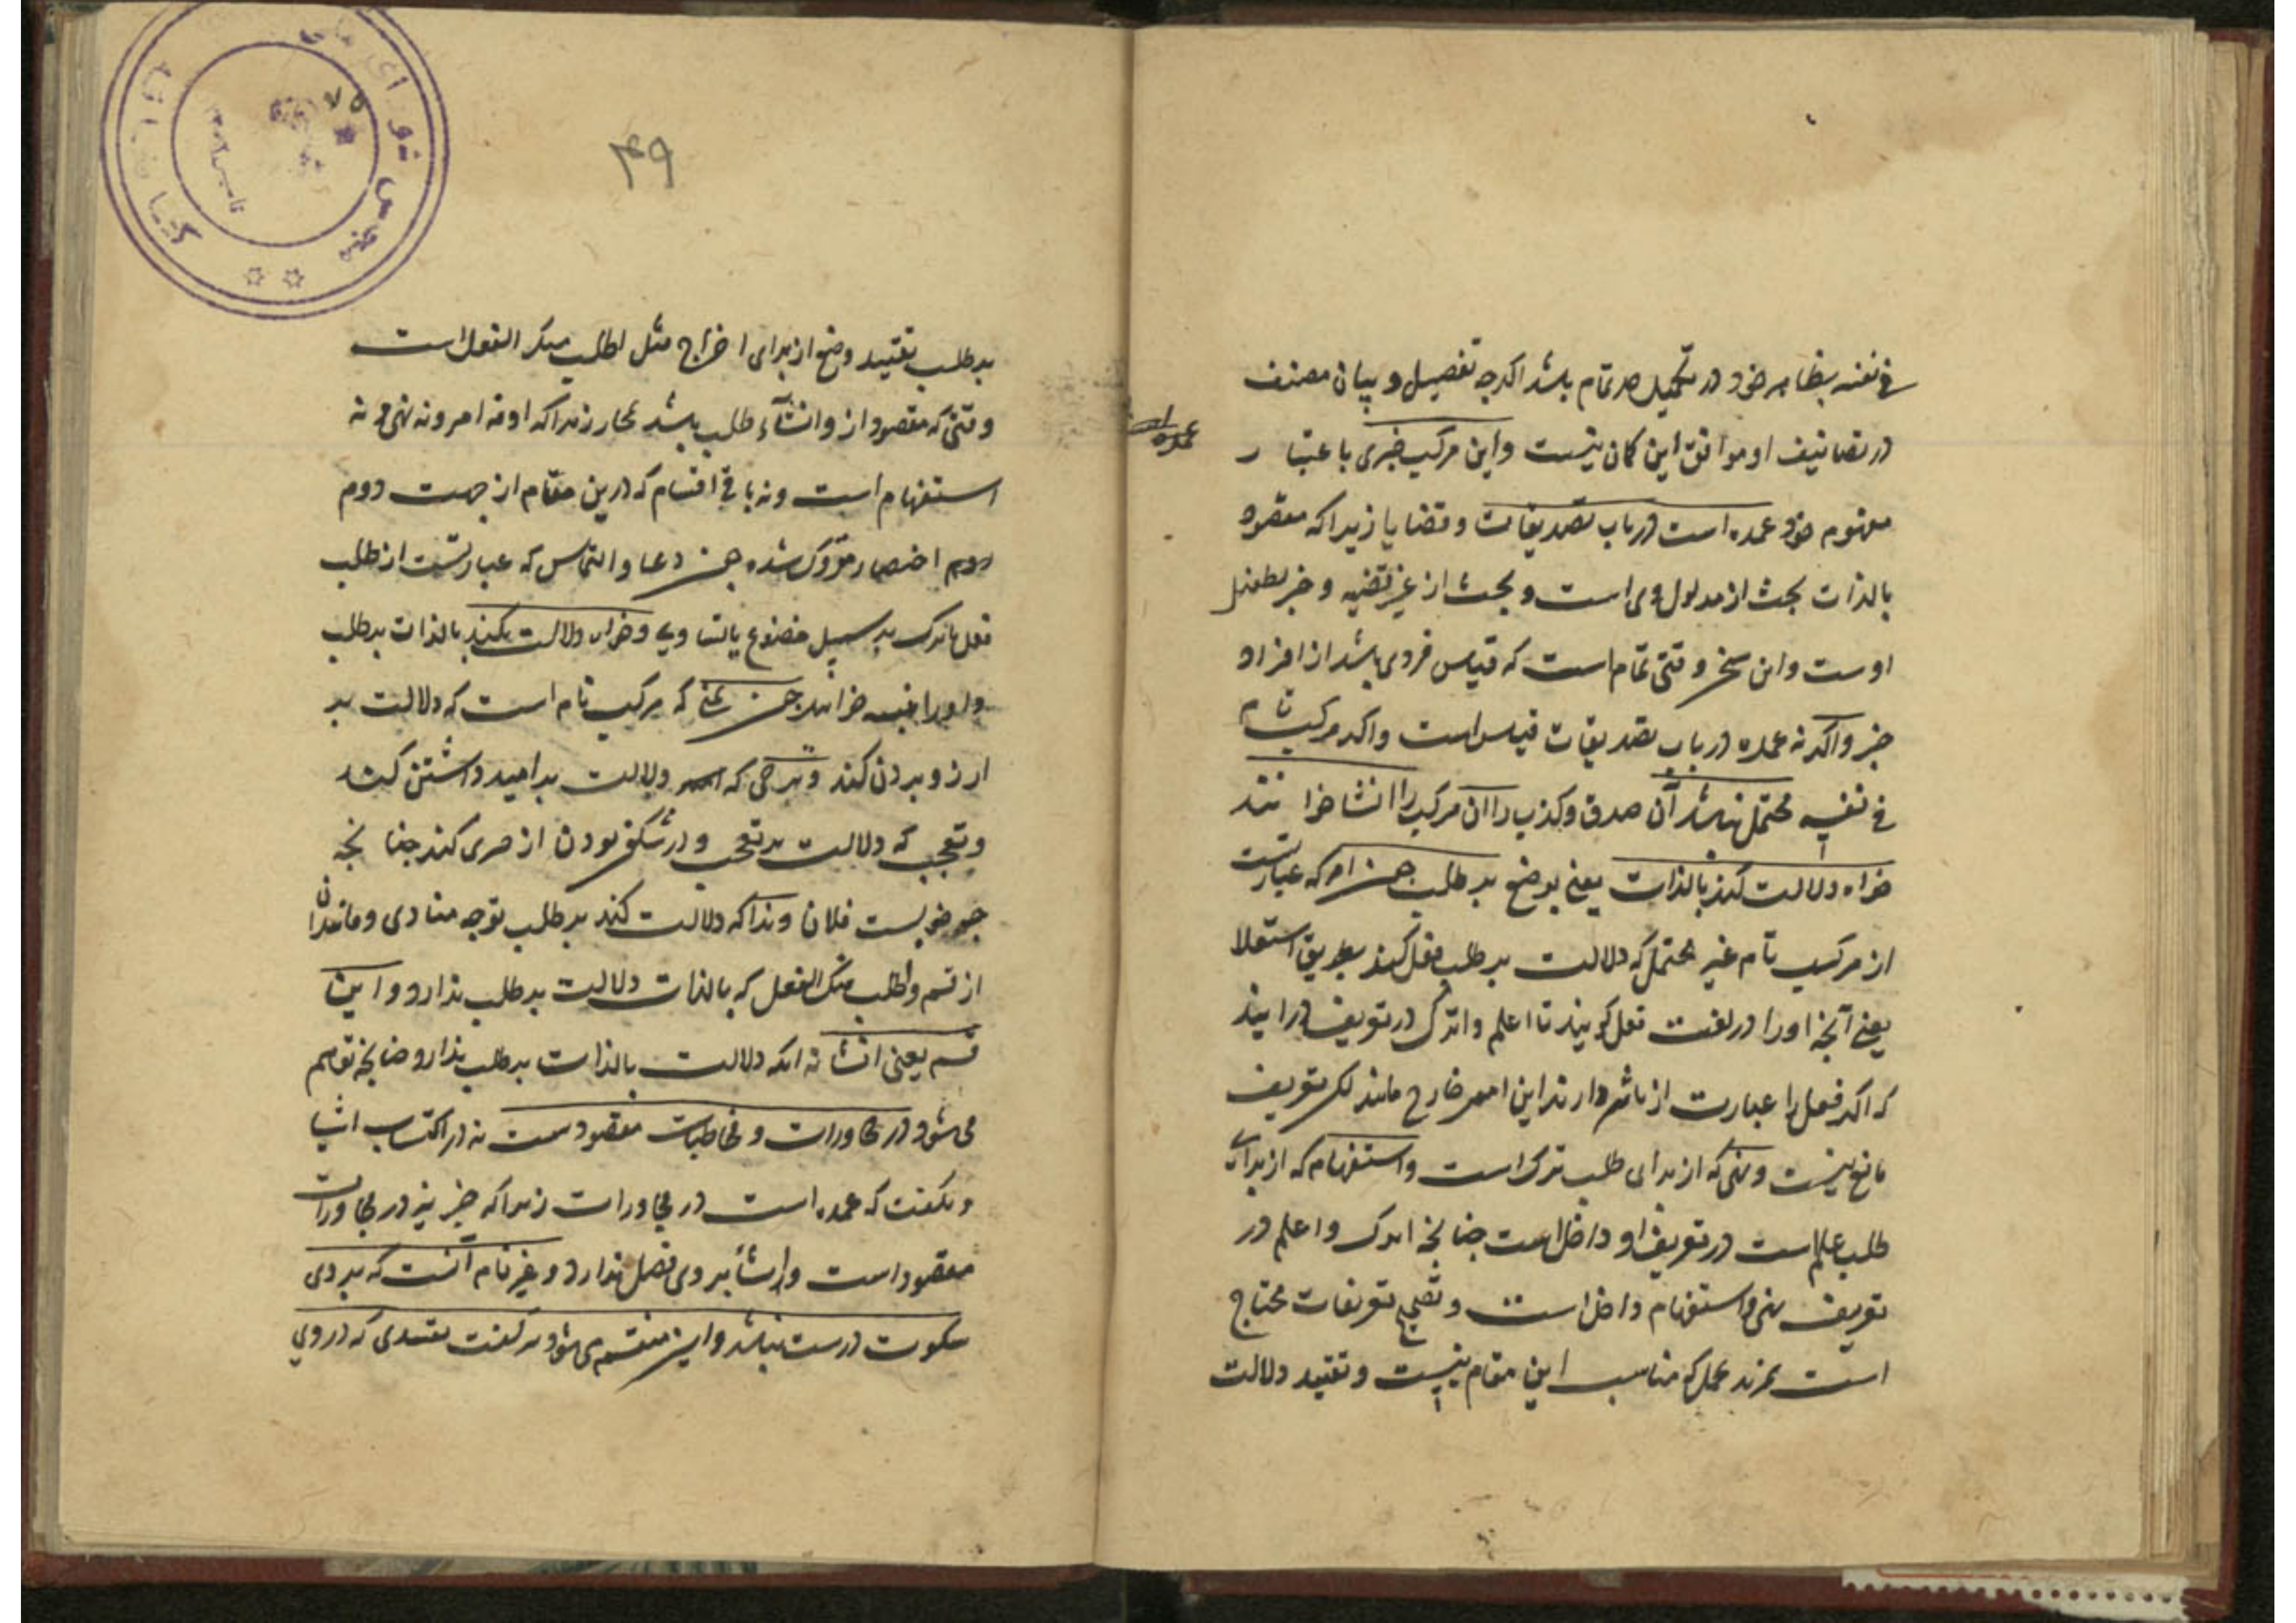 فی نفسه بظاهر خود در تکمیل صر تمام باشد اگرچه تفصیل و بیان مصنف
در تصانیف او موافق این کان نیست و این مرکب خبری باعتبار
مفهوم خود عمده است در باب تصدیقات و قضایا زیرا که مقصود
بالذات بحث از مدلول وی است و بحث از غیر قضیه و خبر بطفیل
اوست و این سخن وقتی تمام است که قیاس فردی باشد از افراد
خبر و اکر نه عمده در باب تصدیقات قیاس است و اکر مرکب تام
فی نفسه محتمل نباشد آن صدق و کذب را آن مرکب را انشا خوانند
خواه دلالت کند بالذات یعنی بوضع بر طلب چون امر که عبارتست
از مرکب تام غیر محتمل که دلالت بر طلب فعل کند بطریق استعلا
یعنی آنچه او را در لغت فعل گویند تا اعلم و اترک در تعریف درایند
که اکر فعل را عبارت از تاثیر دارند این امور خارج مانند لکن تعریف
مانع نیست و نهی که از برای طلب ترک است و استفهام که از برای
طلب علم است در تعریف او داخل است چنانچه اترک و اعلم در
تعریف نهی و استفهام داخل است و تصحیح تعریفات محتاج
است بمزید عمل که مناسب این مقام نیست و تقیید دلالت
عمده
۴۹
۷۵
مجلس شورای ملی
کتابخانه
تاسیس ۱۳۰۲
بر طلب بتقیید وضع از برای اخراج مثل اطلب منک الفعل است
وقتی که مقصود از و انشاء طلب باشد مجاز زیرا که او نه امر و نه نهی و نه
استفهام است و نه باقی اقسام که درین مقام از جهت دوم
روم اختصار متروک شده چون دعا و التماس که عبارتست از طلب
فعل یا ترک بر سبیل خضوع یا تساوی و خواه دلالت نکند بالذات بر طلب
و او را تنبیه خوانند چون تمنی که مرکب تام است که دلالت بر
ارزو بردن کند و ترجی که دلالت بر امید داشتن کند
و تعجب که دلالت بر تعجب و در شکفت بودن از چیزی کند چنانچه
چه خوبست فلان و ندا که دلالت کند بر طلب توجه منادی و مانند آن
از قسم و اطلب منک الفعل که بالذات دلالت بر طلب ندارد و این
قسم یعنی انشا نه انکه دلالت بالذات بر طلب ندارد چنانچه توهم
می شود در محاورات و مخاطبات مقصودست نه در اکتساب اشیا
و نکفت که عمده است در محاورات زیرا که خبر نیز در محاورات
مقصود است و انشا بر وی فضل ندارد و غیر تام آنست که بر وی
سکوت درست نباشد و این منقسم می شود بر کفت تقییدی که در وی